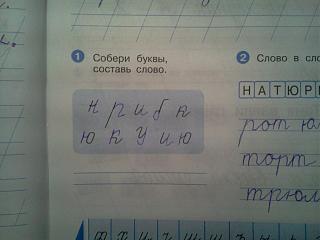 1 Собери буквы, составь слово.
н р и б к
ю к у и ю
2 Слово в сло
НАТЮР
рот ю
торт
трюм